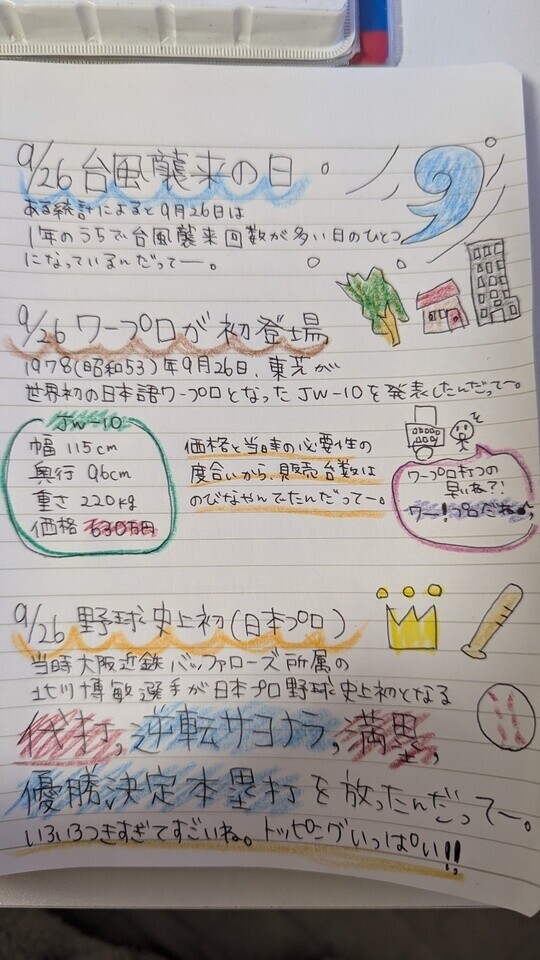 9/26 台風襲来の日
ある統計によると9月26日は
1年のうちで台風襲来回数が多い日のひとつ
になっているんだってー。
9/26 ワープロが初登場
1978(昭和53)年9月26日、東芝が
世界初の日本語ワープロとなったJW-10を発表したんだってー。
JW-10
幅 115cm
奥行 96cm
重さ 220kg
価格 630万円
価格と当時の必要性の
度合いから、販売台数は
のびなやんでたんだってー。
ワープロ打つの
早いね?
ワー!プロだね
9/26 野球史上初(日本プロ)
当時大阪近鉄バッファローズ所属の
北川博敏選手が日本プロ野球史上初となる
代打、逆転サヨナラ、満塁、
優勝決定本塁打を放ったんだってー。
いろいろつきすぎてすごいね。トッピングいっぱい!!